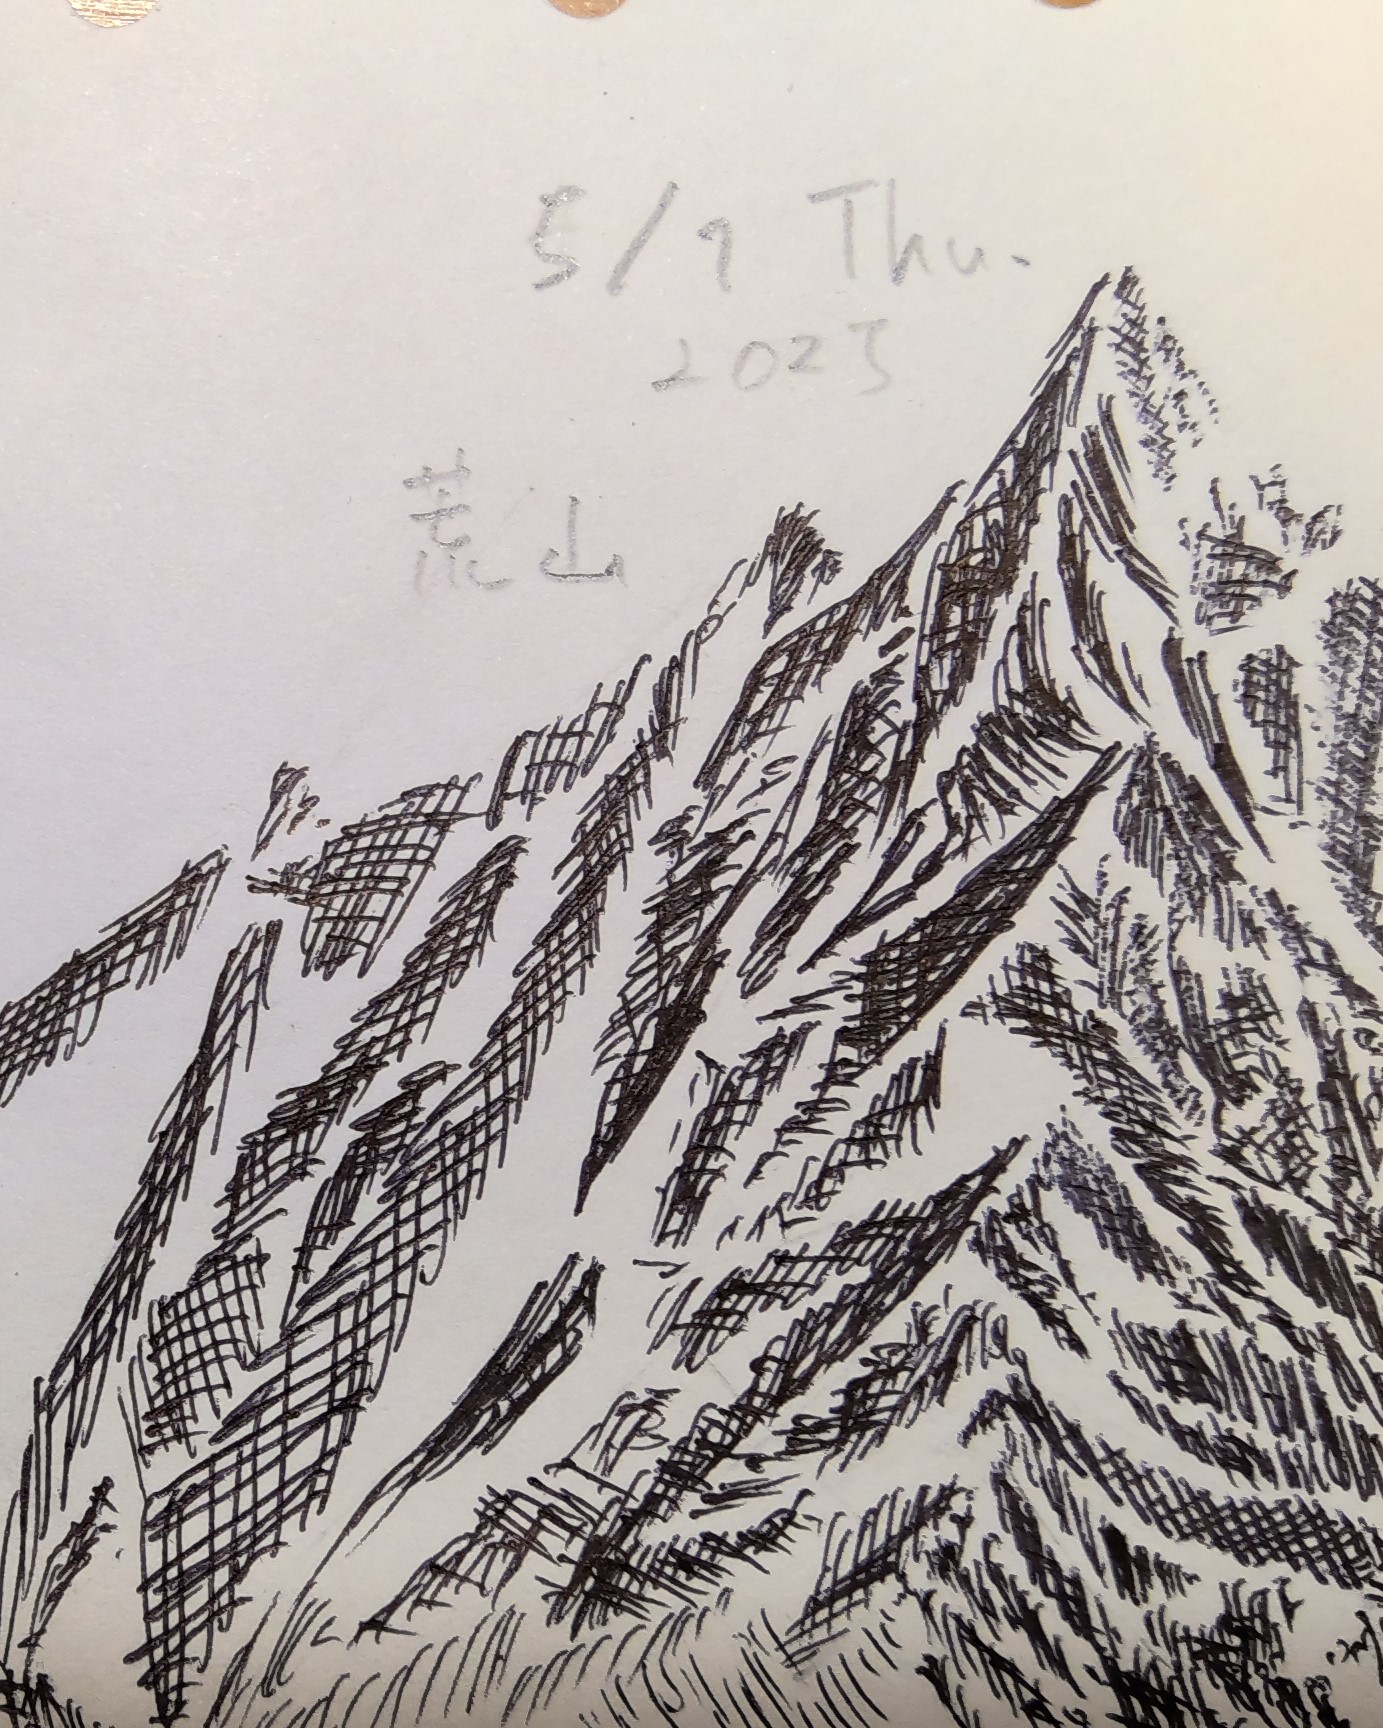 5/1 Thu.
2025
荒山